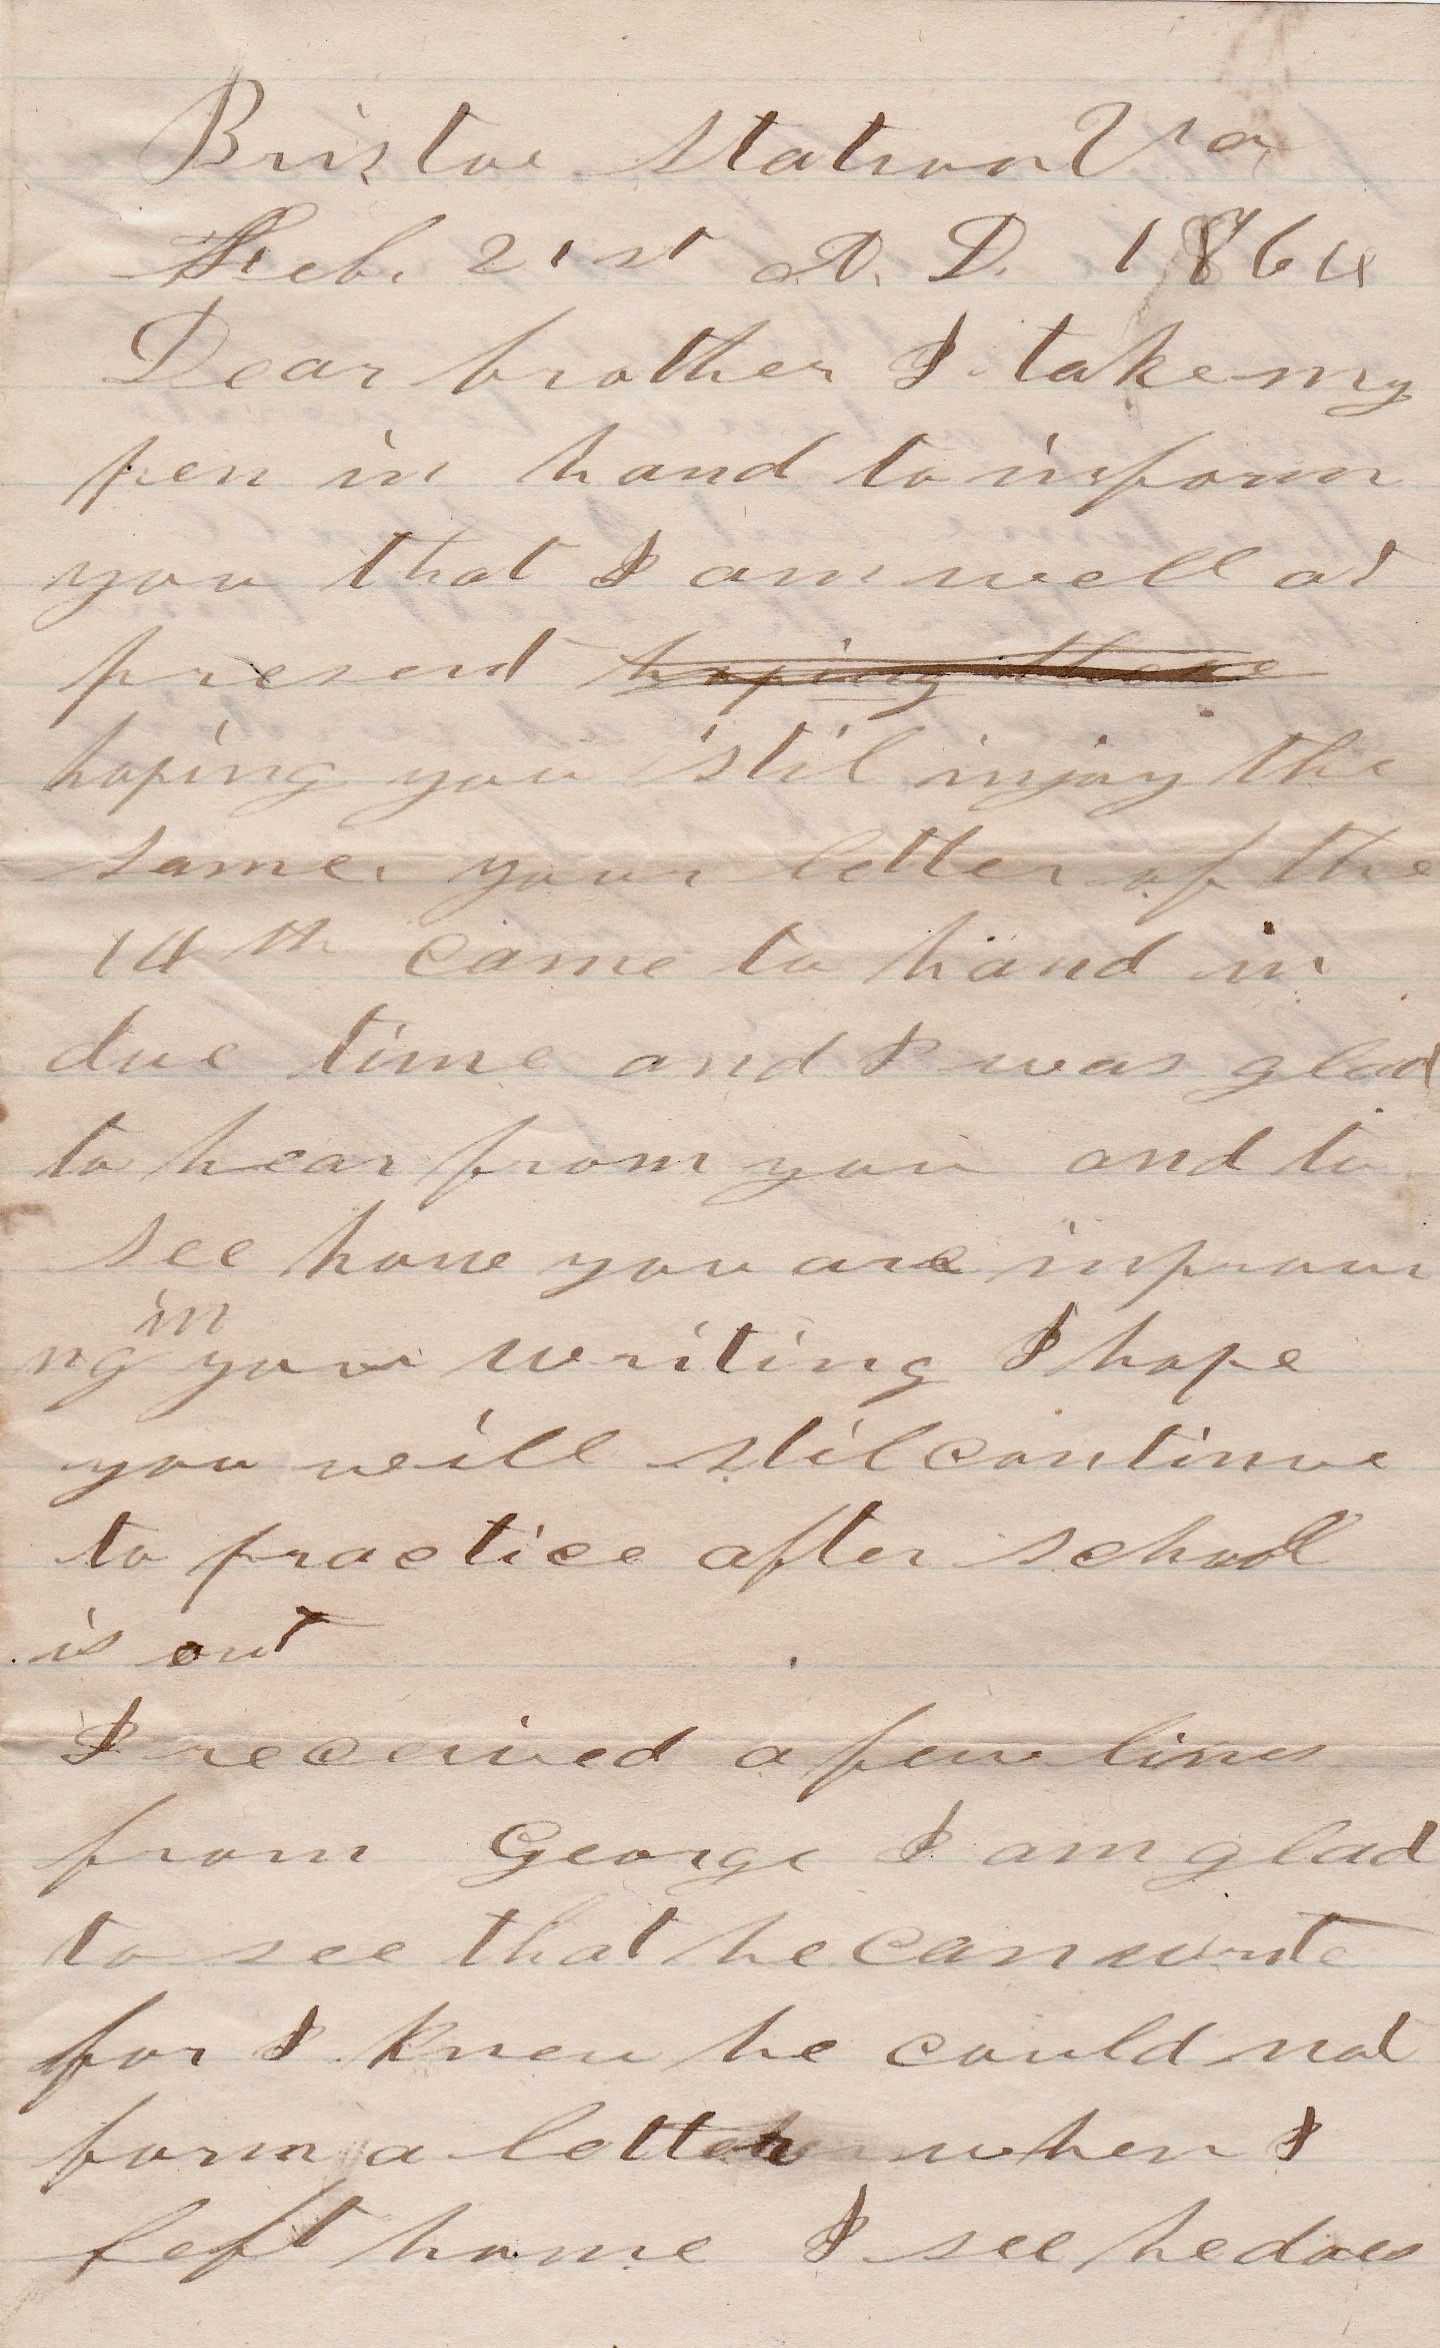 Bristoe station Va
Feb. 21st A. D. 1864
Dear brother I take my
pen in hand to inform
you that I am well at
present hoping these
hoping you stil injoy the
same. your letter of the
14th came to hand in
due time and I was glad
to hear from you and to
see how you are improvi
ng in your writing I hope
you will stil continue
to practice after school
is out
I received a few lines
from George I am glad
to see that he can write
for I knew he could not
form a letter when I
left home I see he does